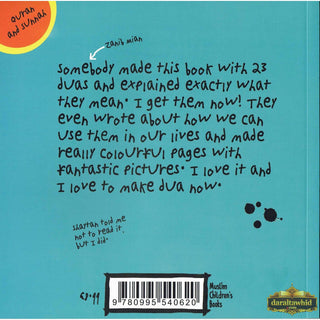 Quran
and Sunnah
Zanib mian
Somebody made this book with 23
duas and explained exactly what
they mean. I get them now! They
even wrote about how we can
use them in our lives and made
really colourful pages with
fantastic pictures. I love it and
I love to make dua now.
Shaytan told me
not to read it
but I did.
Muslim
Children's
Books
9 780995 540620
daraltawhid